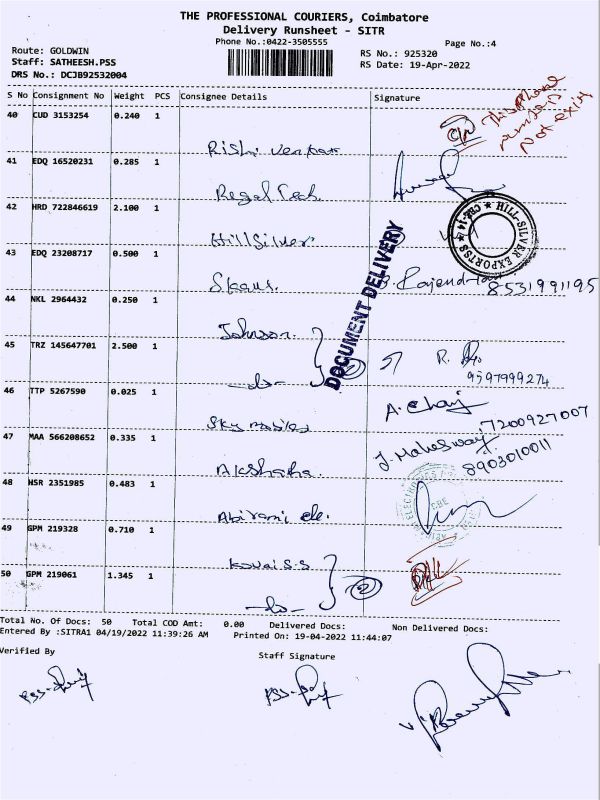 THE PROFESSIONAL COURIERS, Coimbatore
Delivery Runsheet - SITR
Phone No.:0422-3505555
Page No.:4
Route: GOLDWIN
Staff: SATHEESH.PSS
DRS No.: DCJB92532004
RS No.: 925320
RS Date: 19-Apr-2022
S No Consignment No Weight PCS Consignee Details Signature
This phone
number is
not
40 CUD 3153254 0.240 1
Rishi Venkat
41 EDQ 16520231 0.285 1
Regal Tech
42 HRD 722846619 2.100 1
Hill Silver
HILL-SILVER EXPORTSS ★ CBE-14 ★
DOCUMENT DELIVERY
43 EDQ 23208717 0.500 1
Skans. Rajendran
8531991195
44 NKL 2964432 0.250 1
Johnson
45 TRZ 145647701 2.500 1
-do- 2 R.
9597999274
46 TTP 5267590 0.025 1
Sky mobiles
7200927007
47 MAA 566208652 0.335 1
Akshaha J. Maheswary
8903010011
48 NSR 2351985 0.483 1
Abirami ele. CBE
49 GPM 219328 0.710 1
Kovai S.S
50 GPM 219061 1.345 1
-do- 2
Total No. Of Docs: 50 Total COD Amt: 0.00 Delivered Docs: Non Delivered Docs:
Entered By :SITRA1 04/19/2022 11:39:26 AM Printed On: 19-04-2022 11:44:07
Verified By
Staff Signature
PSS- PSS-